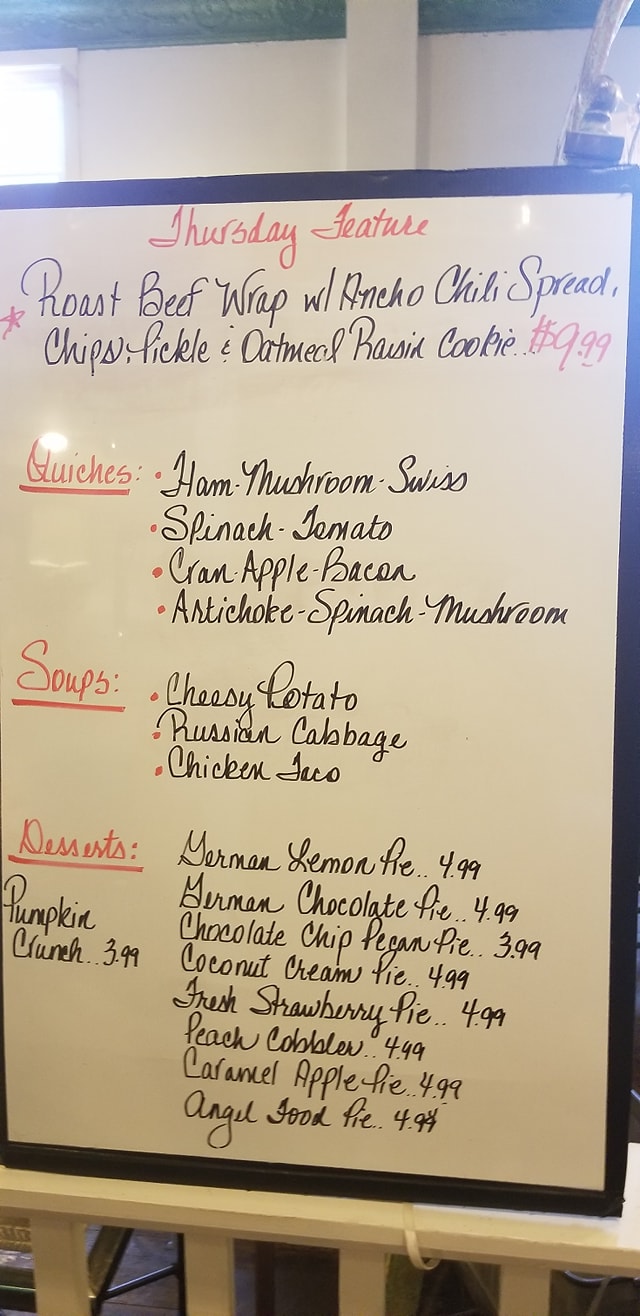 Thursday Feature
* Roast Beef Wrap w/ Ancho Chili Spread,
Chips, Pickle & Oatmeal Raisin Cookie... $9.99
Quiches: • Ham-Mushroom-Swiss
• Spinach-Tomato
• Cran-Apple-Bacon
• Artichoke-Spinach-Mushroom
Soups: • Cheesy Potato
• Russian Cabbage
• Chicken Taco
Desserts:
Pumpkin
Crunch.. 3.99
German Lemon Pie.. 4.99
German Chocolate Pie.. 4.99
Chocolate Chip Pecan Pie.. 3.99
Coconut Cream Pie.. 4.99
Fresh Strawberry Pie.. 4.99
Peach Cobbler.. 4.99
Caramel Apple Pie.. 4.99
Angel Food Pie.. 4.99